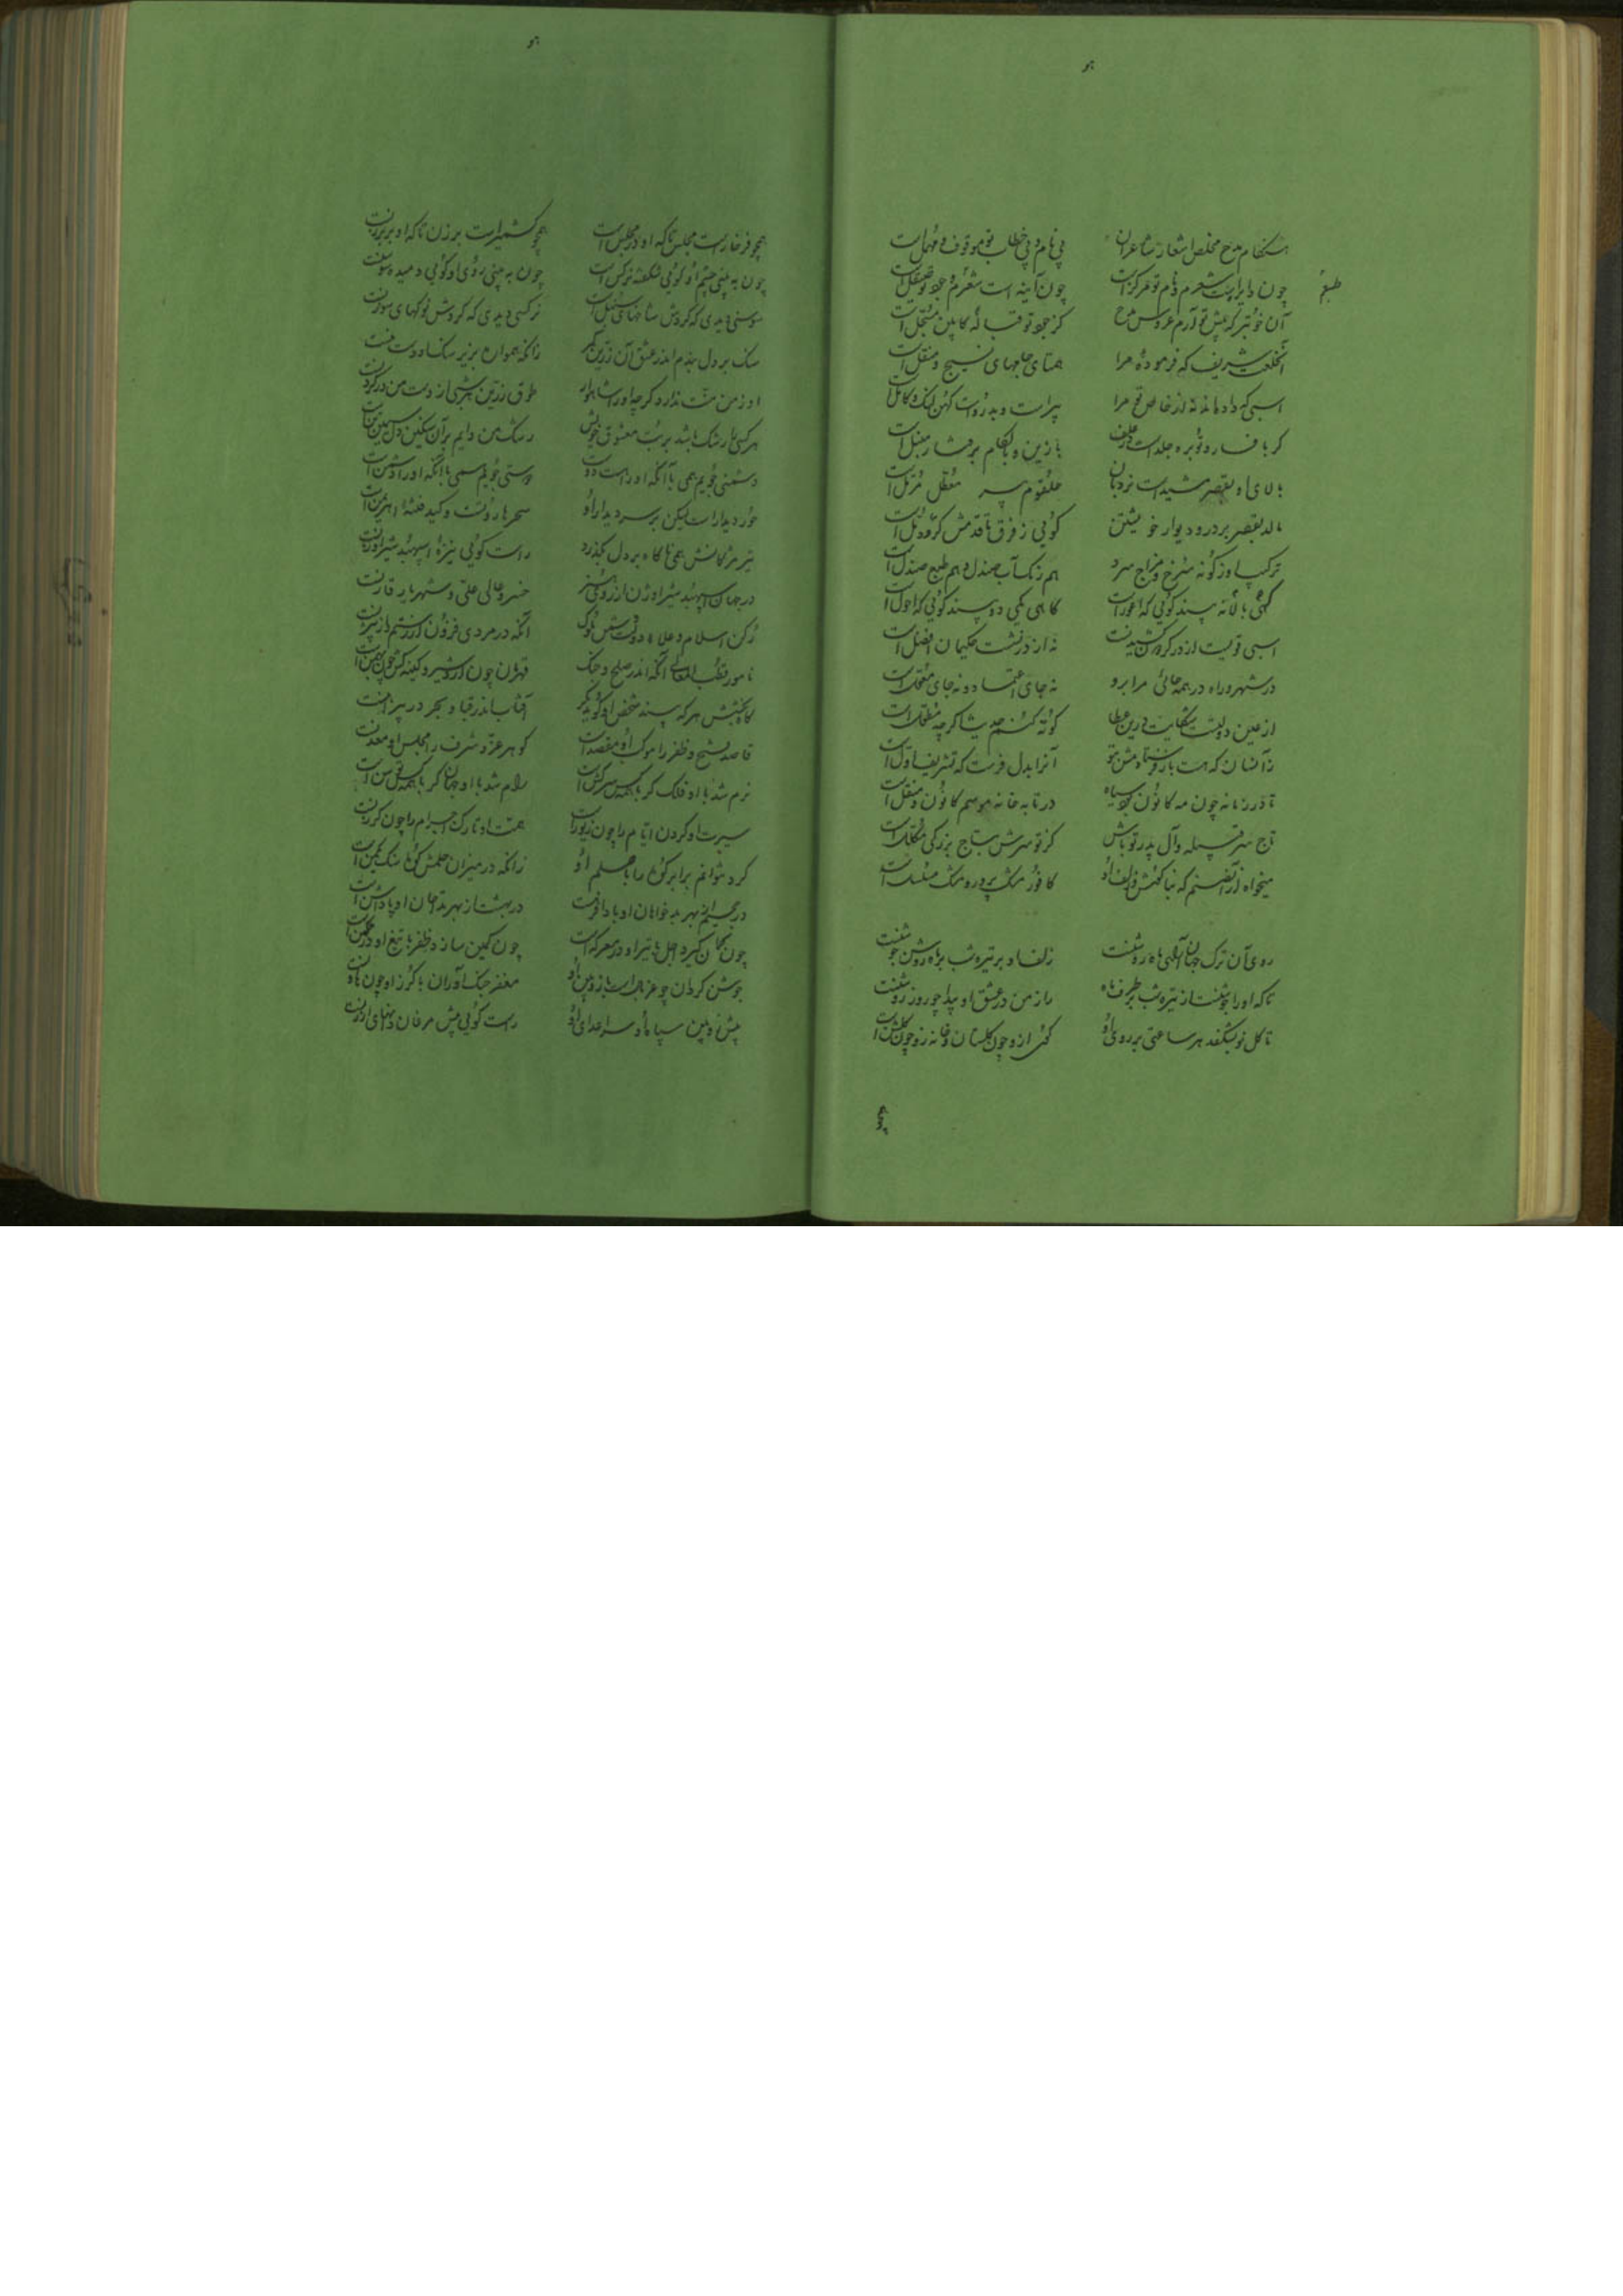 هو
هنگام مدح مخلص اشعار شاعران بی نام و بی خطاب تو موقوف و مهمل است
چون دایره است شعرم و نام تو مرکز است چون آینه است شعرم و جود تو صیقل است
طبع
آن خوبتر که پیش تو آرم عروس مدح کز جود تو قباله کابین مسجل است
آن خلعت شریف که فرموده مرا همتای جامهای نسیج و مثقل است
اسبی که داده اند نه از خاص تو مرا پیر است و بد رو است کهن لنگ و کاهل است
گر با فسار و توبره جلد است در علف با زین و با لگام برفتار منبل است
بالای او بقصر مشید است نردبان حلقوم
مالد بقصر بر در و دیوار خویشتن گویی ز فرق تا قدمش گر و دمل است
ترکیب او ز گونه سرخ و مزاج سرد هم رنگ آب صندل و هم طبع صندل است
گاهی بلاله بیند گویی که اعور است گاهی یکی دو بیند گویی که احول است
اسبی قویست از در گردون کشیدنست نه از در نشست حکیمان افضل است
در شهر و راه در همه جائی مرا برو نه جای اعتماد و نه جای معول است
از عین دولتست شکایت درین عطا کوته کنم حدیث اگر چه مطول است
زآنسان که هست باز فرستادمش بتو آنرا بدل فرست که تشریف اول است
تا در زمانه چون مه کانون بود سیاه در تابه خانه موسم کانون و منقل است
تاج سر قبیله و آل پدر تو باش کز تو سرش بتاج بزرگی مکلل است
میخواه از آن صنم که بناگوش و زلف او کافور مشک پرور و مشک مسلسل است
روی آن ترک جهان آرای ماه روشنست زلف او بر تیره شب بر ماه روشن جوشنست
تا که او را جوشنست از تیره شب بر طرف ماه راز من در عشق او پیدا چو روز روشنست
تا گل نو بشکفد هر ساعتی بر روی او کوی ازو چون گلستان و خانه زو چون گلشن است
هو
همچو فرخار است مجلس تا که او در مجلس است همچو کشمیر است برزن تا که او در برزنست
چون به بینی چشم او گویی شکفته نرگس است چون به بینی روی او گویی دمیده سوسنست
سوسنی دیدی که گردش شاخهای سنبل است نرگسی دیدی که گردش نوکهای سوزنست
سنگ بر دل بندم اندر عشق آن زرین کمر زانکه همواره بزیر سنگ او دست منست
او ز من منت ندارد گر چه او را شاهوار طوق زرین بهتری از دست من در گردنست
هر کسی را رشک باشد بر بت معشوق خویش رشک من دایم بر آن سنگین دل سیمین تن است
دشمنی جویم همی با آنکه او را هست دوست دوستی جویم همی با آنکه او را دشمن است
حور دیدار است لیکن بر سر دیدار او سحر هاروتست و کید و فتنه اهریمن است
تیر مژگانش همی ناگاه بر دل بگذرد راست گویی نیزه اسپهبد شیراوژنست
در جهان اسپهبد شیراوژن از روی هنر خسرو عالی علی و شهریار قارنست
رکن اسلام و علاء دولتست آنکه در مردی فزون از رستم و از بیژنست
نامور قطب المعالی آنکه اندر صلح و جنگ قهرمان چون اردشیر و کینه کش چون بهمن است
گاه بخشش هر که بیند شخص او گوید مگر آفتاب اندر قبا و بحر در پیراهنست
قاصد فتح و ظفر را موکب او مقصد است گوهر عز و شرف را مجلس او معدنست
نرم شد با او فلک گر با همه کس سرکش است رام شد با او جهان گر با همه کس توسن است
سیرت او گردن ایام را چون زیور است همت او تارک اجرام را چون گرزنست
کرد نتوانم برابر کوه را با حلم او زانکه در میزان حلمش کوه سنگ یکمن است
در جحیم از بهر بدخواهان او باد افرهست در بهشت از بهر نیکخواهان او پاداشن است
چون کمان گیرد اجل با تیر او در معرکه است چون کمین سازد ظفر با تیغ او در مکمن است
جوشن گردان چو غربال است با زوبین او مغفر جنگ آوران با گرز او چون هاونست
پیش زوبین سپاه او سر اعدای او راست گویی پیش مرغان دانهای ارزنست